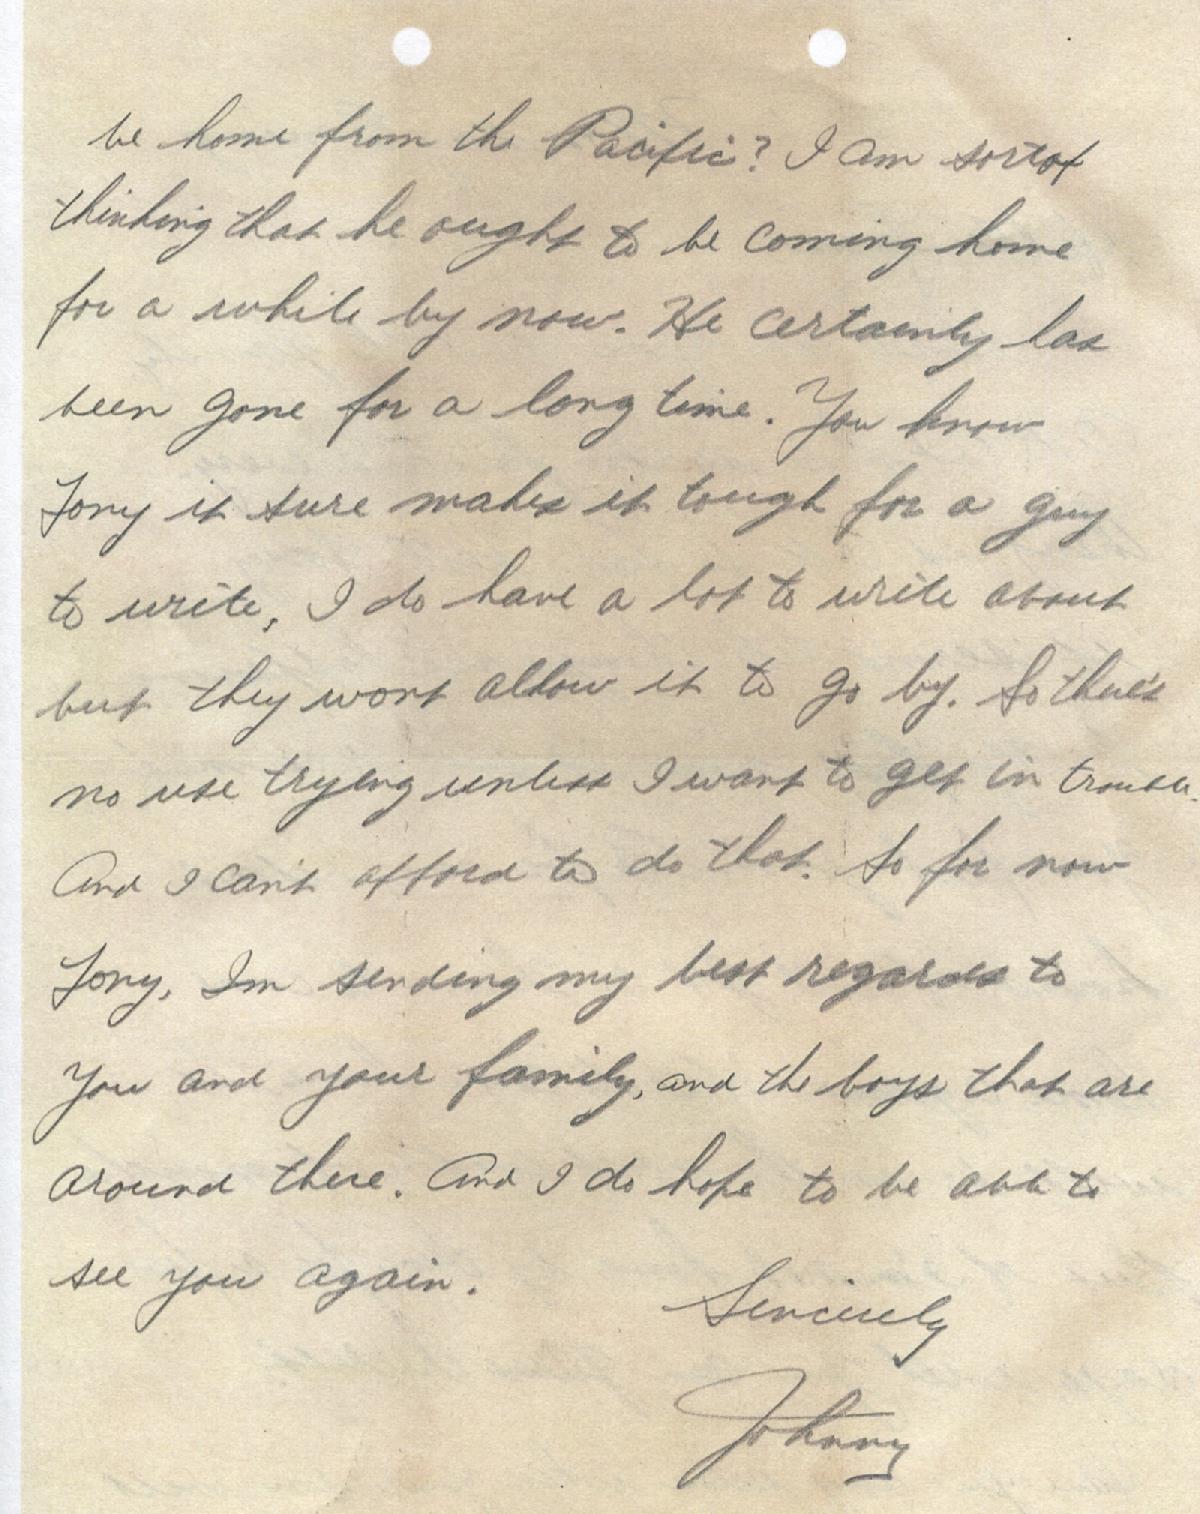 be home from the Pacific? I am sortof
thinking that he ought to be coming home
for a while by now. He certainly has
been gone for a long time. You know
Tony it sure makes it tough for a guy
to write, I do have a lot to write about
but they wont allow it to go by. So there's
no use trying unless I want to get in trouble.
And I can't afford to do that. So for now
Tony, Im sending my best regards to
you and your family, and the boys that are
around there. And I do hope to be able to
see you again.
Sincerely
Johnny